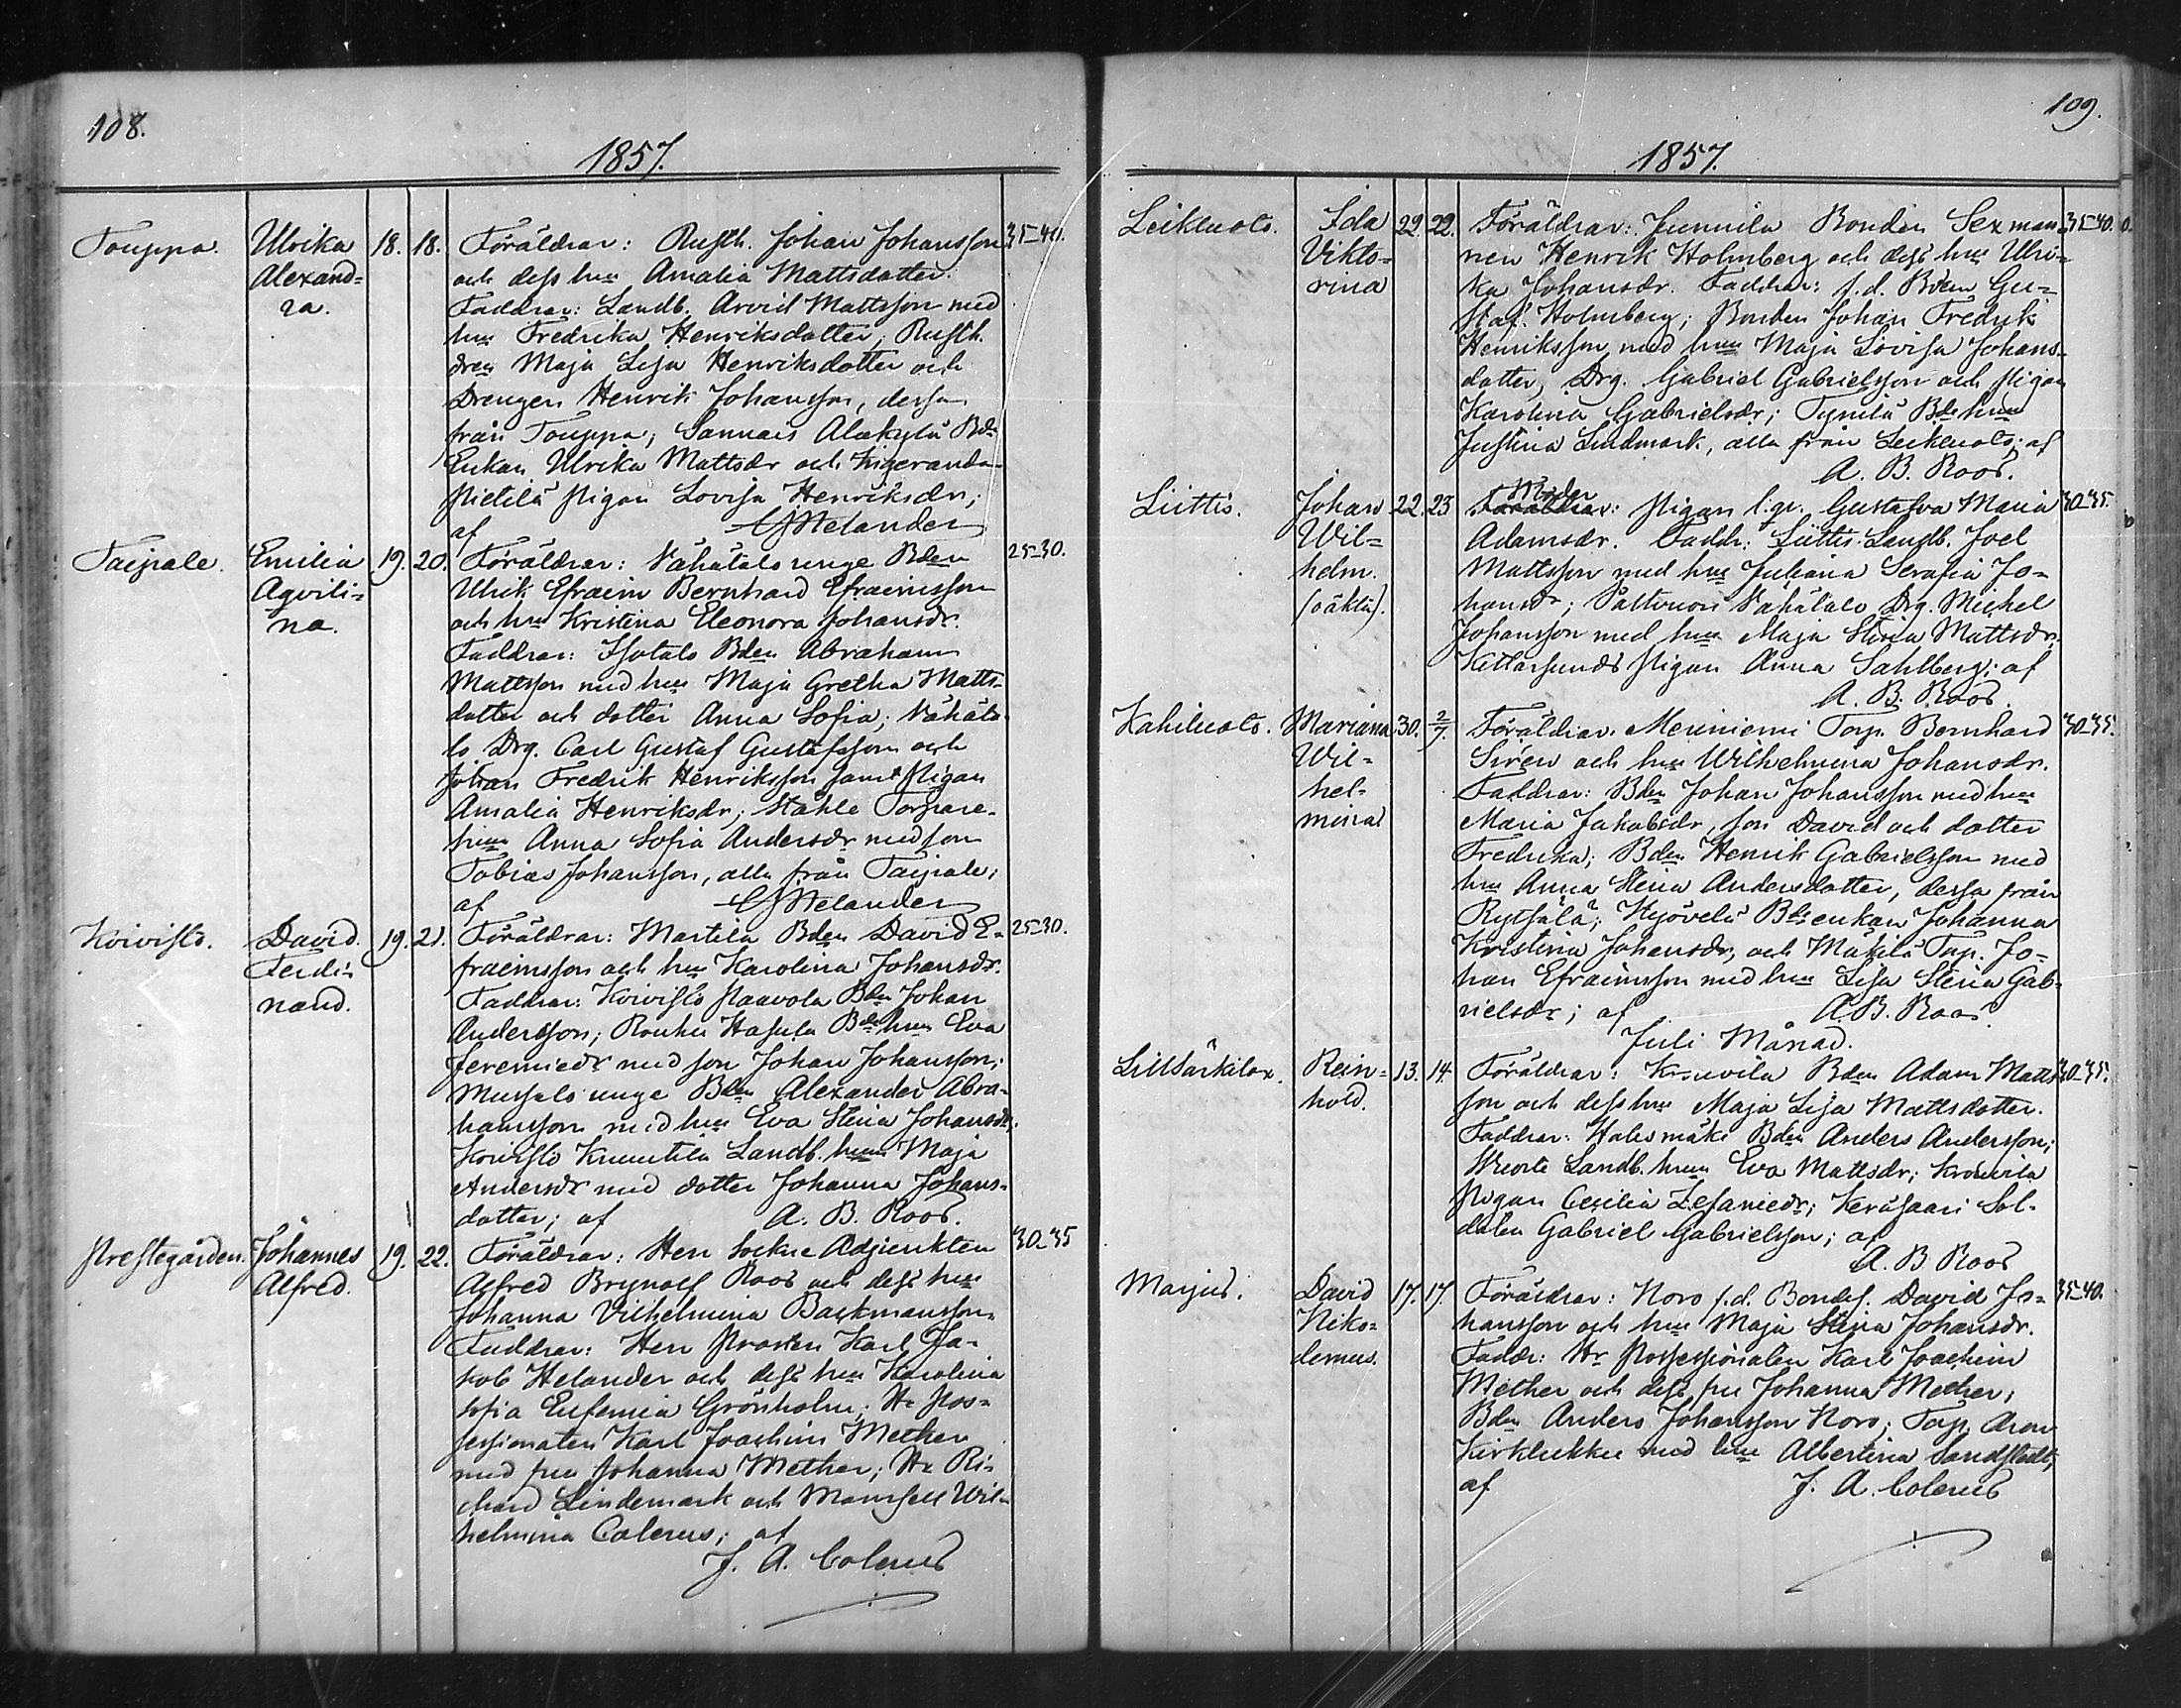 108.
1857.
Touppa. Ulrika 18. 18. Föräldrar: Rusth. Johan Johansson 35-40.
Alexand= och dess hu Amalia Mattsdotter.
ra. Faddrar: Landb. Arvid Mattsson med
hu Fredrika Henriksdotter; Rusth.
dren Maja Lisa Henriksdotter och
Drengen Henrik Johansson, dessa
från Touppa; Sannais Alakylä Bde
Enkan Ulrika Mattsdr och
Pietilä Pigan Lovisa Henriksdr;
af CJHelander
Taipale. Emilia 19. 20. Föräldrar: Vähätalo unge Bden 25-30.
Aqvili= Ulrik Efraim Bernhard Efraimsson
na. och hu Kristina Eleonora Johansdr.
Faddrar: Isotalo Bden Abraham
Mattsson med hu Maja Gretha Matts=
dotter och dotter Anna Sofia; Vähäta=
lo Drg. Carl Gustaf Gustafsson och
Johan Fredrik Henriksson samt Pigan
Amalia Henriksdr; Stahle Torpare=
hun Anna Sofia Andersdr med son
Tobias Johansson, alla från Taipale;
af CJHelander
Koivisto. David 19. 21. Föräldrar: Martila Bden David E= 25-30.
Ferdi= fraimsson och hu Karolina Johansdr.
nand. Faddrar: Koivisto Paavola Bden Johan
Andersson; Rouhu Hasula Bdehun Eva
Jeremiedr med son Johan Johansson;
Mussalo unge Bden Alexander Abra=
hamsson med hu Eva Stina Johansdr;
Koivisto Knuutila Landb. hun Maja
Andersdr med dotter Johanna Johans=
dotter; af A. B. Roos.
Prestegården. Johannes 19. 22. Föräldrar: Herr Sockne Adjunkten 30-35
Alfred. Alfred Brynolf Roos och dess hu
Johanna Vilhelmina Backmansson.
Faddrar: Herr Prosten Karl Ja=
kob Helander och dess hu Karolina
Sofia Eufemia Grönholm; Hr Pos=
sessionaten Karl Joachim Mether
med fru Johanna Mether; Hr Ri=
chard Lindemark och Mamsell Wil=
helmina Calerus; af
J. A. Colerus
109.
1857.
Leikluoto. Ida 22. 22. Föräldrar: Junnila Bonden Sexman= 35-40.
Vikto= nen Henrik Holmberg och dess hu Ulri=
rina ka Johansdr. Faddrar: f.d. Bden Gu=
staf Holmberg; Bonden Johan Fredrik
Henriksson med hu Maja Lovisa Johans=
dotter, Drg. Gabriel Gabrielsson och Pigan
Karolina Gabrielsdr; Tynilä Bdehun
Justina Lindmark, alla från Leikluoto; af
A. B. Roos.
Liittis. Johan 22. 23 Föräldrar: Moder Pigan l.gr. Gustafva Maria 30-35.
Wil= Adamsdr. Faddr: Liittis Landb. Joel
helm. Mattsson med hu Juliana Serafia Jo=
(oäkta). hansdr; Sattvuori Vähätalo Drg. Michel
Johansson med hu Maja Stina Mattsdr;
Kittarsunds Pigan Anna Sahlberg; af
A. B. Roos.
Kahiluoto. Mariana 30. 2/7. Föräldrar: Meriniemi Torp. Bernhard 30-35.
Wil= Sirén och hu Wilhelmina Johansdr.
hel= Faddrar: Bden Johan Johansson med hu
mina Maria Jakobsdr, son David och dotter
Fredrika; Bden Henrik Gabrielsson med
hu Anna Stina Andersdotter, dessa från
Rytsälä; Hyövelä Bdeenkan Johanna
Kristina Johansdr, och Mäkilä Torp. Jo=
han Efraimsson med hu Lisa Stina Gab=
rielsdr; af A. B. Roos.
Juli Månad.
Lillsärkilax. Rein= 13. 14. Föräldrar: Krouvila Bden Adam Matts= 30-35.
hold. son och dess hu Maja Lisa Mattsdotter.
Faddrar: Halismäki Bden Anders Andersson;
Wuorte Landb. hun Eva Mattsdr; Krouvila
Pigan Cecilia Zefaniedr; Keräsaari Sol=
daten Gabriel Gabrielsson; af
A. B. Roos
Marjus. David 17. 17. Föräldrar: Noro f.d. Bondes. David Jo= 35-40.
Niko= hansson och hu Maja Stina Johansdr.
demus. Faddr: Hr Possessionaten Karl Joachim
Mether och dess fru Johanna Mether;
Bden Anders Johansson Noro; Torp. Aron
Kirklukku med hu Albertina Sandstedt;
af J. A. Colerus